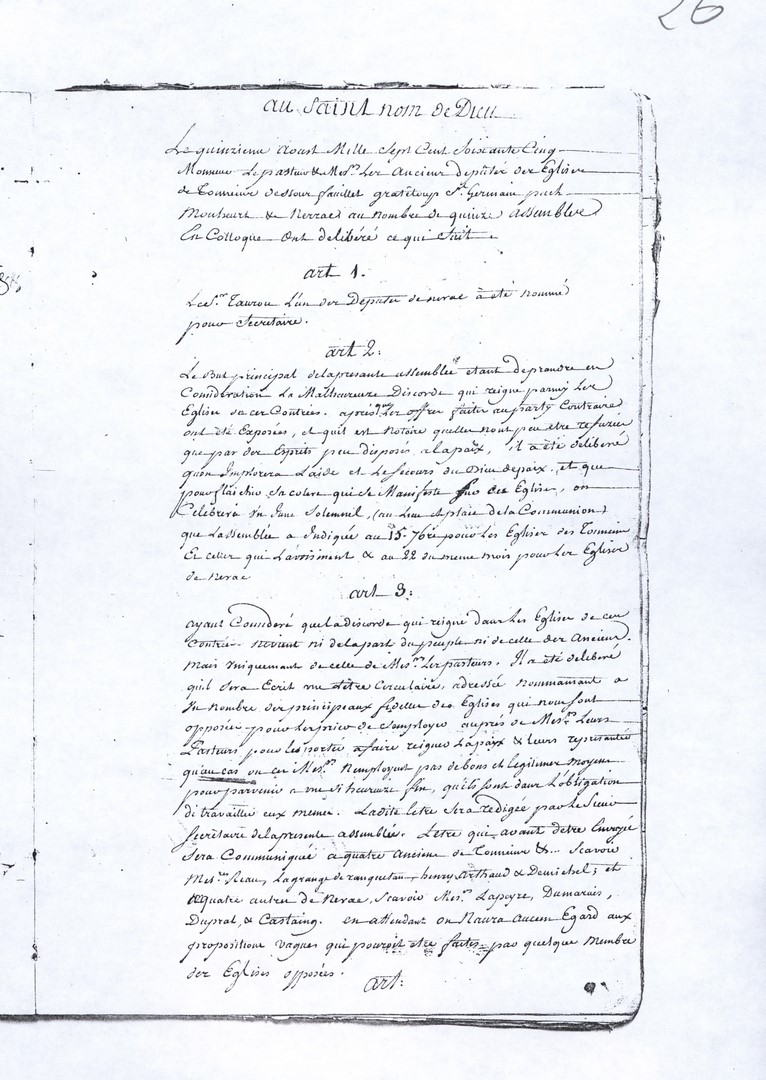 26
au Saint nom de Dieu
Le quinzieme aoust Mille Sept Cent Soixante Cinq
Monsieur Le pasteur & Mes.rs Les Anciens deputés des Eglises
de Tonneins dessous fauillet grateloup St Germain puch
Montheurt & Nerrac au nombre de quinze assemblés
En Colloque ont deliberé ce qui Suit
art 1.
Le s.r Taurou L'un des Deputés de nerac a été nommé
pour Secretaire.
art 2:
Le But principal de la presante assemblée etant de prandre en
Consideration La Malhureuse Discorde qui reigne parmy Les
Eglises de ces Contrées. après que Les offres faites au party Contraire
ont été Exposées, et quil est Notoire quelles nont peu etre refusées
que par des Esprits peu disposés a la paix, il a été deliberé
quon Implorera L'aide et Le Secours du Dieu de paix, et que
pour flaichir Sa colere qui se Manifeste sur ces Eglises, on
Celebrera un June Solemnel, (au Lieu et place de la Communion)
que L'assemblée a Indiquée au 15 7bre pour Les Eglises des Tonneins
Et celles qui L'avoisinent & au 22 du meme mois pour Les Eglises
de Nerac
art 3:
ayant Consideré que La discorde qui reigne dans Les Eglises de ces
Contrées Nevient ni de la part du peuple ni de celle des Anciens.
Mais Uniquemant de celle de Mes.rs Les pasteurs. Il a été deliberé
quil Sera Ecrit une Lettre Circulaire, adressée nommamant a
Un Nombre des principeaux fidelles des Eglises qui nous sont
opposées pour Les prier de S'employer auprés de Mes.rs Leurs
Pasteurs pour Les porter a faire reigner La paix & leurs representer
qu'au cas ou ces Mes.rs N'employent pas de bons et legitimes moyens
pour parvenir a une si heureuse fin, quils sont dans L'obligation
di travailler eux meme. Ladite Letre Sera redigée par Le Sieur
Secretaire de la presente assemblée. Letre qui avant detre Envoyé
Sera Communiqué a quatre Anciens de Tonneins &... Scavoir
Mes.rs Lagrange de ranquetau, henry, Arthaud & Demichel; et
a quatre autres de Nerac, Scavoir Mes.rs Lapeyre, Dumarais,
Duprat, & Castaing. en attendant on N'aura aucun Egard aux
propositions vagues qui pouroit etre faites par quelque Membre
des Eglises opposées.
art: